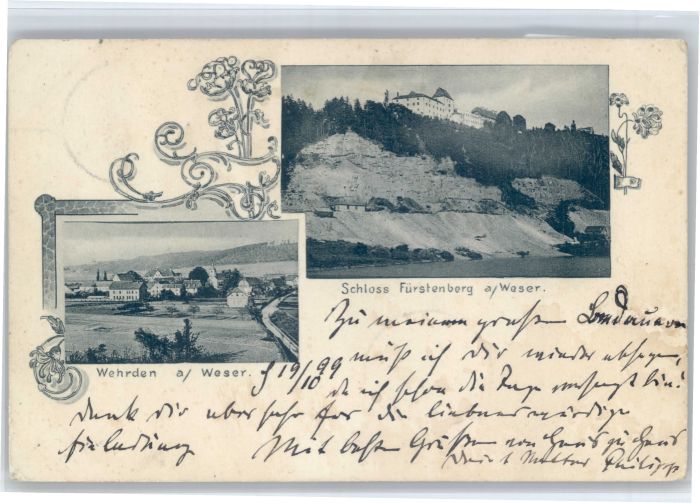 Schloss Fürstenberg a/Weser.
Wehrden a/ Weser.
Zu meinem großen Bedauern
f 19/10 99 muß ich Dir wieder absagen,
da ich schon die Tage versagt bin!
Dank Dir aber sehr für die liebenswürdige
Einladung Mit besten Grüßen von Haus zu Haus
Philipp